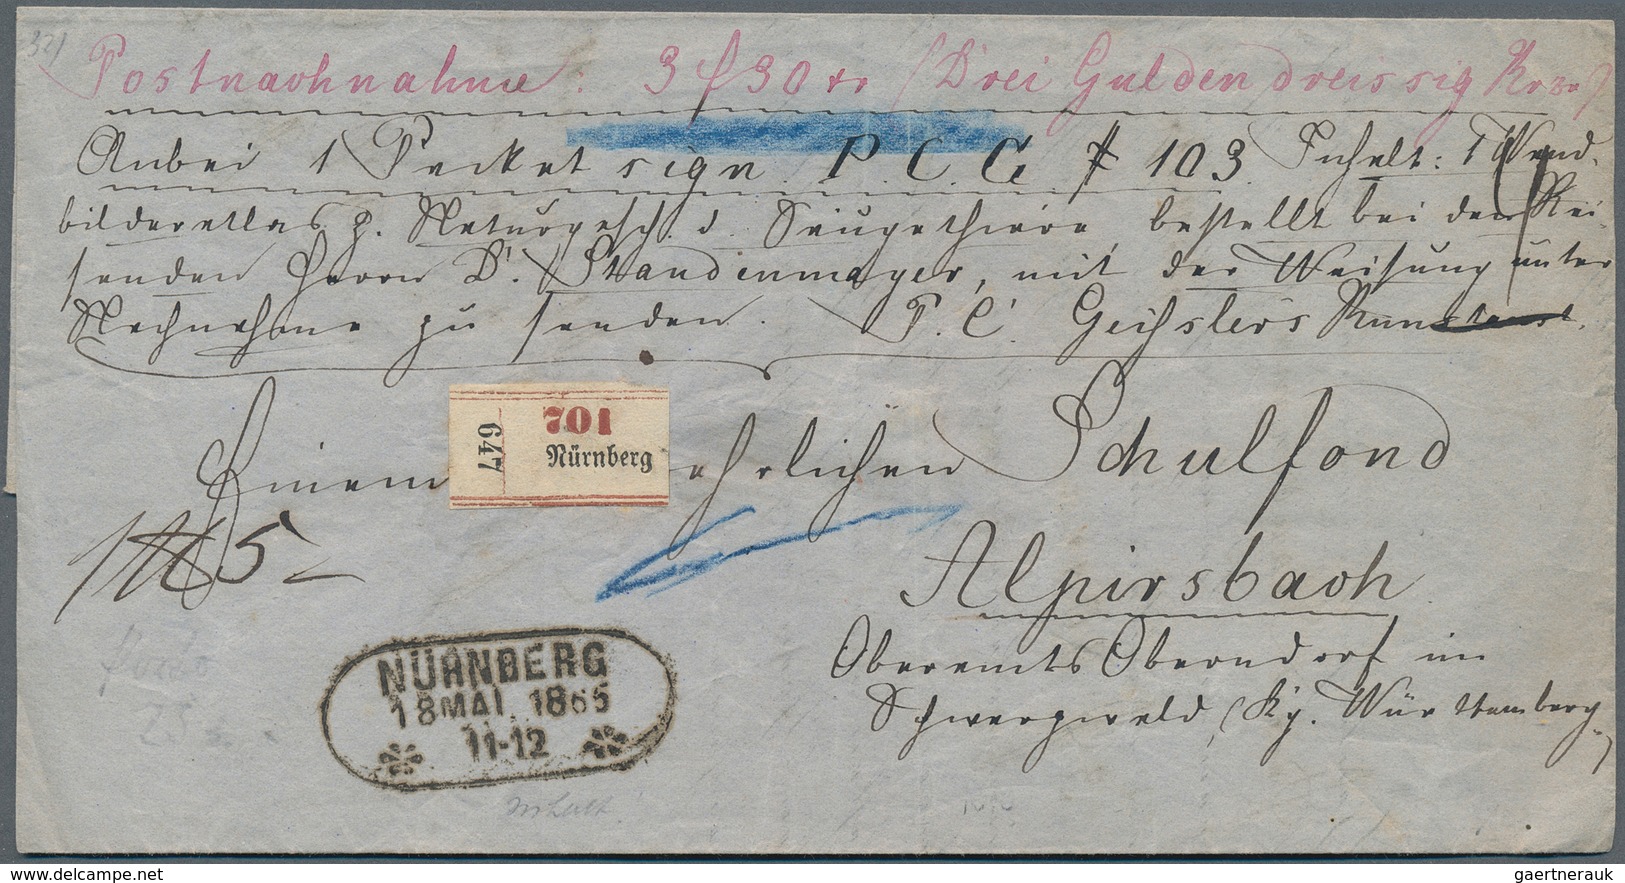 321
Postnachnahme: 3 f 30 xr (Drei Gulden dreissig Krzr)
Anbei 1 Packet sign P. C. G # 103 Inhalt: 1 Wand-
bilderatlas z. Naturgesch. d. Säugethiere, bestellt bei dem Rei-
senden Herrn Dr. Staudenmayer, mit der Weisung unter
Nachnahme zu senden. P. C. Geissler's
701
647
Nürnberg
Einem ehrlichen Schulfond
Alpirsbach
5
Oberamts Oberndorf im
Schwarzwald, (Kg. Württemberg)
Porto
NÜRNBERG
18 MAI. 1865
11-12
delcampe.net
gaertnerauk